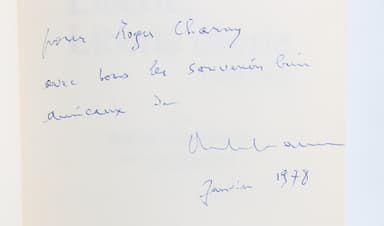 pour Roger Charny
avec tous les souvenirs bien
amicaux de
Janvier 1978